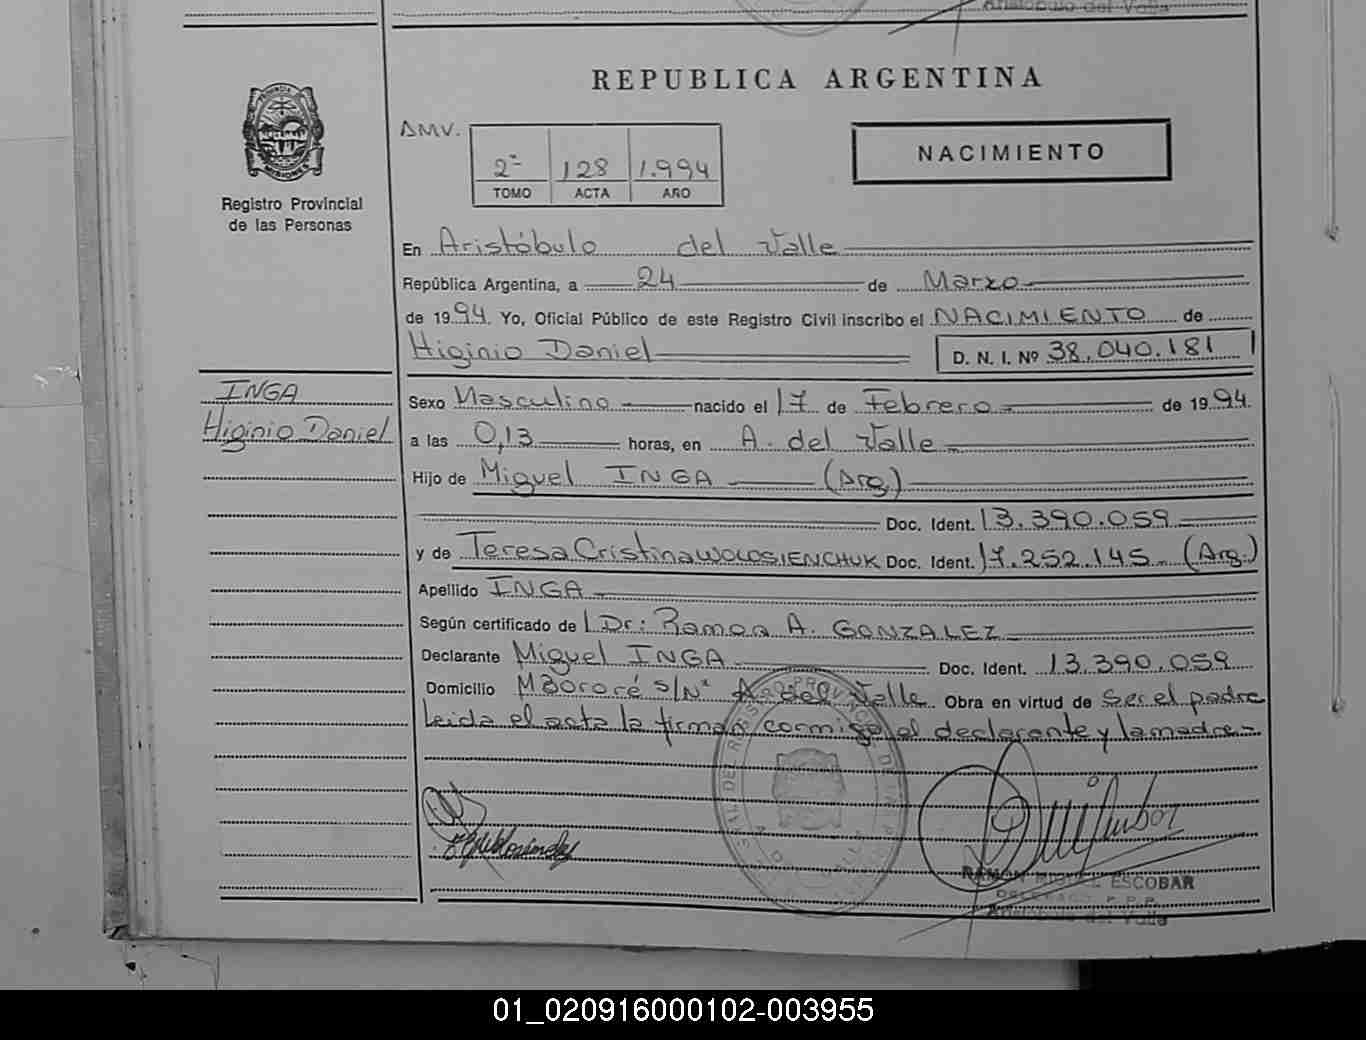 Aristóbulo del Valle
REPUBLICA ARGENTINA
PROVINCIA
MISIONES
Registro Provincial
de las Personas
DMV.
2ª 128 1.994
TOMO ACTA AÑO
NACIMIENTO
En Aristóbulo del Valle
República Argentina, a 24 de Marzo
de 1994. Yo, Oficial Público de este Registro Civil inscribo el NACIMIENTO de
Higinio Daniel D. N. I. Nº 38.040.181
INGA
Higinio Daniel
Sexo Masculino nacido el 17 de Febrero de 1994
a las 0,13 horas, en A. del Valle
Hijo de Miguel INGA (Arg.)
Doc. Ident. 13.390.059
y de Teresa Cristina WOLOSIENCHUK Doc. Ident. 17.252.145 (Arg.)
Apellido INGA
Según certificado de Dr: Ramon A. GONZALEZ
Declarante Miguel INGA Doc. Ident. 13.390.059
Domicilio MBororé s/Nº A. del Valle Obra en virtud de Ser el padre
Leida el acta la firman conmigo el declarante y la madre.-
RAMON MIGUEL ESCOBAR
DELEGADO P.P.P.
Aristóbulo del Valle
01_020916000102-003955